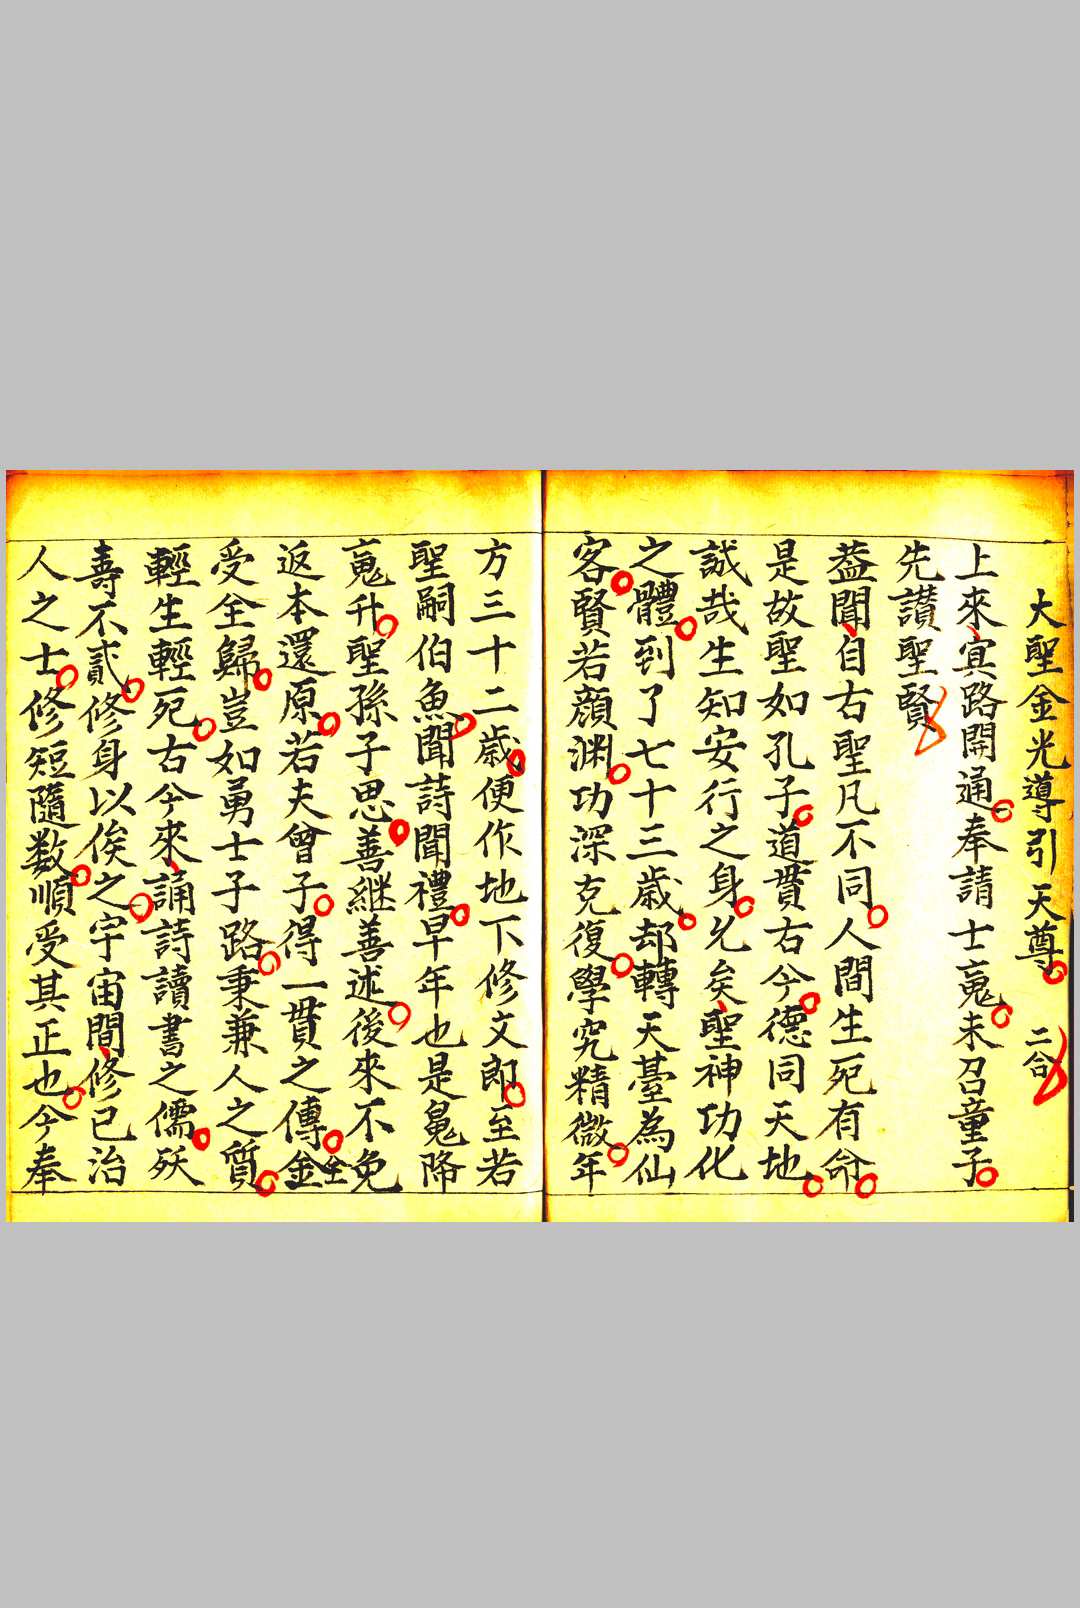 大聖金光導引天尊 二合
上來寘路開通奉請士䰟未召童子
先讃聖賢
葢聞自古聖凡不同人間生死有命
是故聖如孔子道貫古今德同天地
誠哉生知安行之身允矣聖神功化
之體到了七十三歲却轉天臺為仙
客賢若顔渊功深克復學究精微年
方三十二歲便作地下修文郎至若
聖嗣伯魚聞詩聞禮早年也是䰟降
䰟升聖孫子思善継善述後來不免
返本還原若夫曾子得一貫之傳金全
受全歸豈如勇士子路秉兼人之質
輕生輕死古今來誦詩讀書之儒殀
壽不貳修身以俟之宇宙間修已治
人之士修短隨数順受其正也今奉